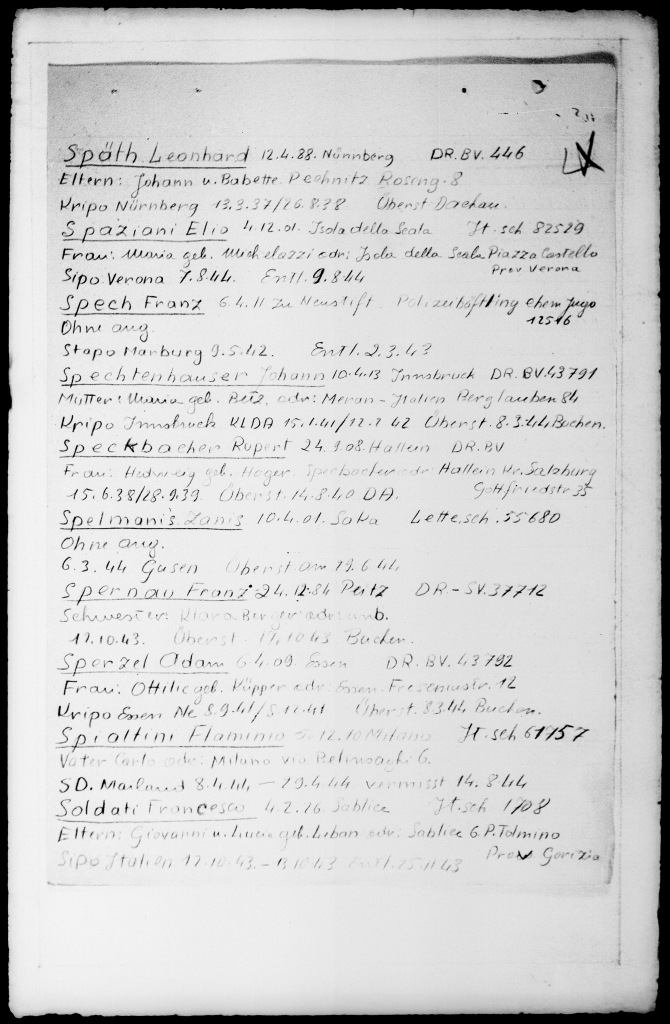 Späth Leonhard 12.4.88. Nürnberg DR.BV. 446
Eltern: Johann u. Babette Pechnitz Roseng. 8
Kripo Nürnberg 13.3.37/26.8.38 Überst Dachau.
Spaziani Elio 4.12.01. Isola della Scala It. sch 82529
Frau: Maria geb. Michelazzi adr: Isola della Scala Piazza Castello
Prov Verona
Sipo Verona 7.8.44. Entl. 9.8.44
Spech Franz 6.4.11 zu Neustift Polizeihäftling ehem Jugo
12516
Ohne ang.
Stapo Marburg 9.5.42. Entl. 2.3.43
Spechtenhauser Johann 10.4.13 Innsbruck DR.BV.43791
Mutter: Maria geb. adr: Meran-Italien Berglauben 84
Kripo Innsbruck KLDA 15.1.41/ 42 Überst. 8.3.44 Buchen.
Speckbacher Rupert 24.9.08. Hallein DR.BV
Frau: Hedweig geb. Hager, Specbacher adr Hallein Kr. Salzburg
Gottfriedstr 35
15.6.38/28.9.39. Überst. 14.8.40 DA.
Spelmanis Zanis 10.4.01. Saka Lette.sch. 55680
Ohne ang.
6.3.44 Gusen Überst am 29.6.44
Spernau Franz 24.12.84 Peitz DR-SV.37712
Schwester: Klara Berger adr: unb.
12.10.43. Überst. 17.10.43 Buchen.
Sperzel Adam 6.4.09. Essen DR.BV. 43792
Frau: Ottilie geb. Küpper adr: Essen-Freseniusstr. 12
Kripo Essen Ne 8.9.41/ Überst. 8.3.44 Buchen.
Spialtini Flaminio 12.10 Milano It.sch 61157
Vater Carlo adr: Milano via 6.
SD. Mailand 8.4.44 – 29.4.44 vermisst 14.8.44
Soldati Francesco 4.2.26 Sablice It.sch 1708
Eltern: Giovanni u. Lucia geb. Leban adr: Sablice G.P. Tolmino
Prov Gorizia
Sipo Italien 12.10.43.– 13.10.43 Entl. 25.11.43